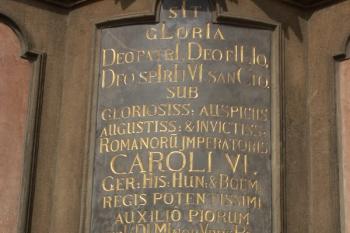 SIT
GLORIA
DEO PATRI, DEO FILIO,
DEO SPIRITVI SANCTO,
SUB
GLORIOSISS: AUSPICIIS
AUGUSTISS: & INVICTISS:
ROMANORŪ IMPERATORIS
CAROLI VI.
GER: HIS: HUN: & BOEM:
REGIS POTENTISSIMI
AUXILIO PIORUM